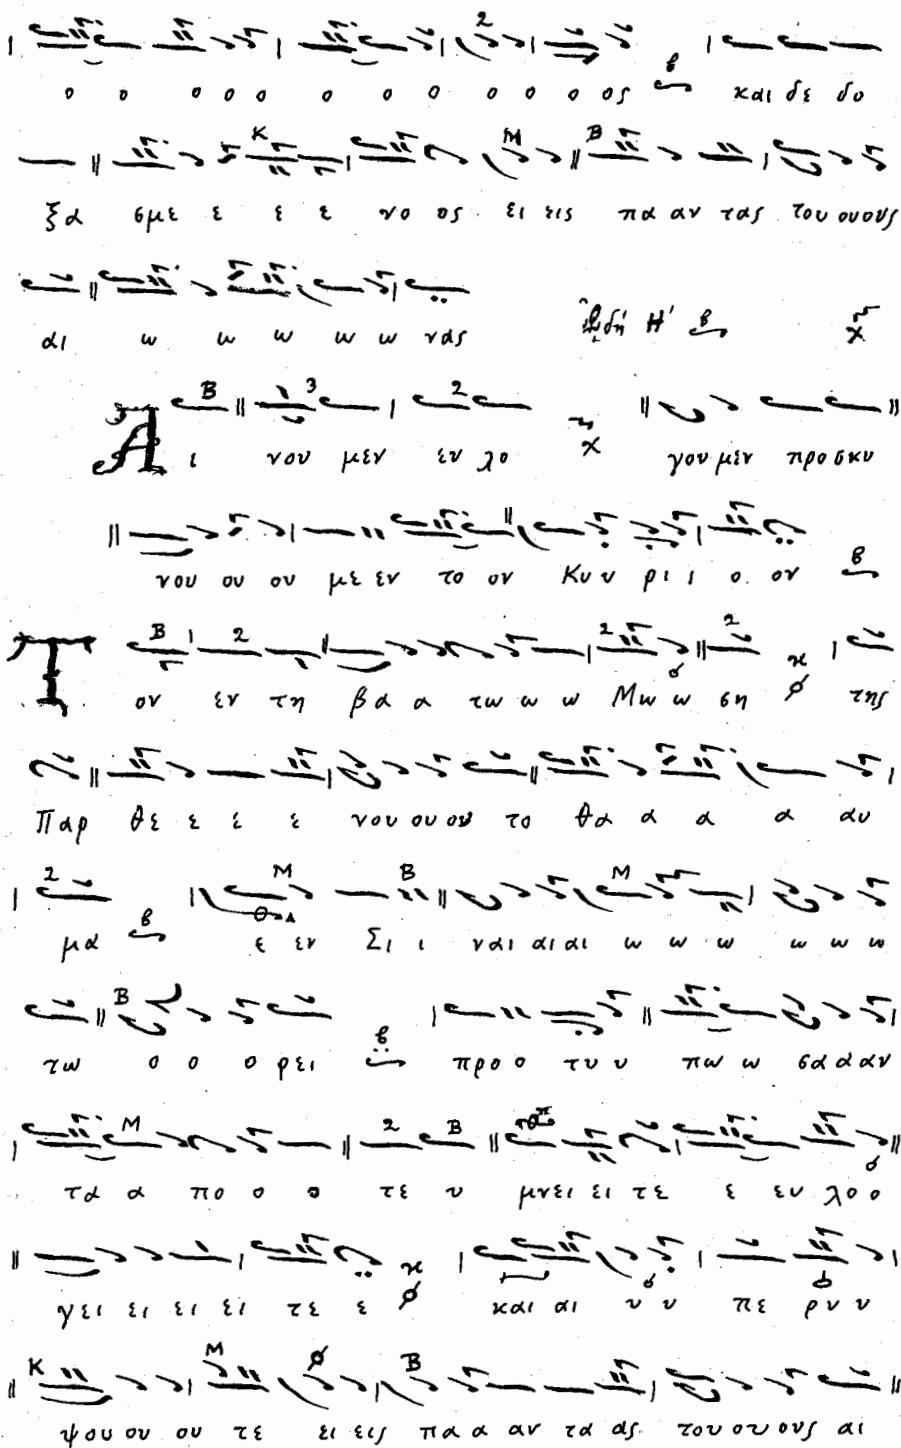 ο ο ο ο ο ο ο ο ο ο ο ος και δε δο
ξα σμε ε ε ε νο ος ει εις πα αν τας του ουους
αι ω ω ω ω ω νας ᾨδή Η′
Α ι νου μεν ευ λο γου μεν προ σκυ
νου ου ου με εν το ον Κυ υ ρι ι ο ον
Τ ον εν τη βα α τω ω ω Μω ω ση της
Παρ θε ε ε ε νου ου ου το θα α α α αυ
μα ε εν Σι ι ναι αι αι ω ω ω ω ω ω
τω ο ο ο ρει προ ο τυ υ πω ω σα α αν
τα α πο ο ο τε υ μνει ει τε ε ευ λο ο
γει ει ει ει τε ε και αι υ υ πε ρυ υ
ψου ου ου τε ει εις πα α αν τα ας του ου ους αι